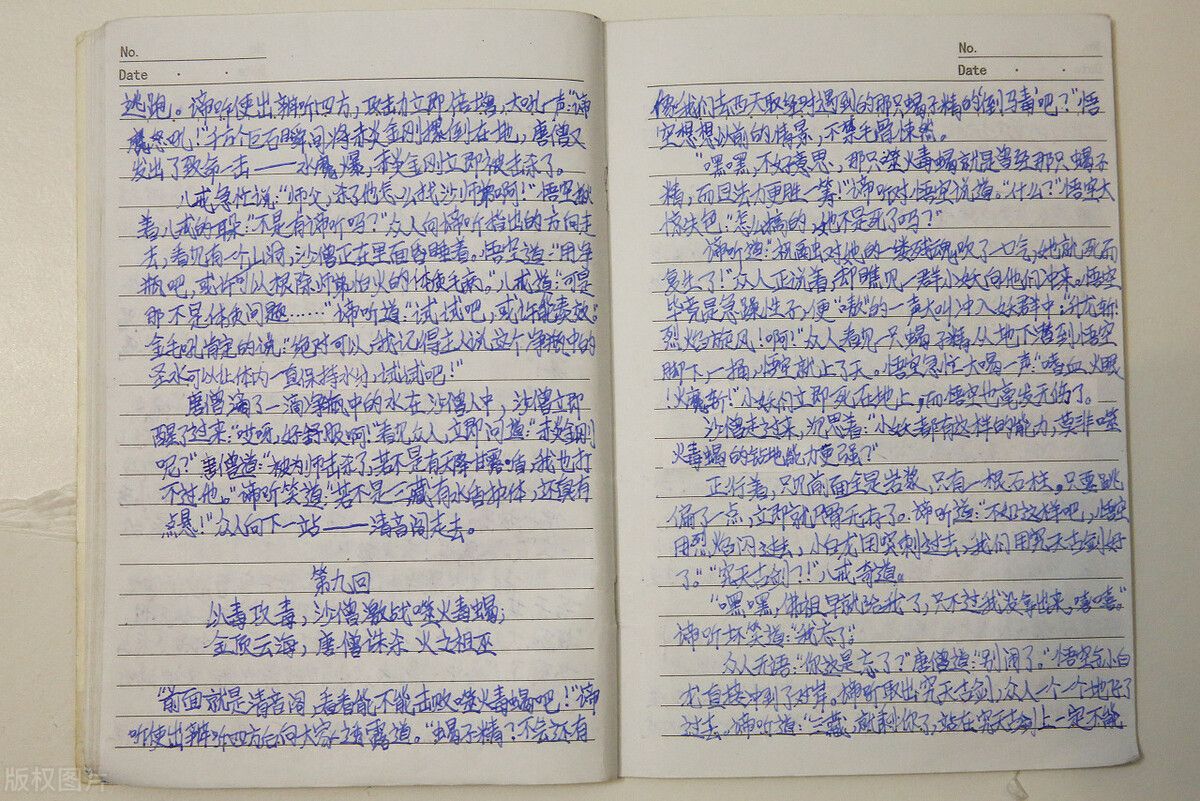 No.
Date
逃跑。谛听使出辨听四方,攻击力立即倍增,大吼一声:“谛
怒吼!”千万个巨石瞬间将赤炎金刚摞倒在地,唐僧又
发出了致命一击——水魔爆,赤炎金刚立即被击杀了。
八戒急忙说:“师父,杀了他怎么找沙师弟啊!”悟空揪
着八戒的耳朵:“不是有谛听吗?”众人向谛听指出的方向走
去,看见有一个山洞,沙僧正在里面昏睡着。悟空道:“用净
瓶吧,或许可以根除师弟怕火的体质毛病。”八戒道:“可是
那不是体质问题……”谛听道:“试试吧,或许能奏效。”
金毛吼肯定的说:“绝对可以,我记得主人说这个净瓶中的
圣水可以让体内一直保持水分,试试吧!”
唐僧滴了一滴净瓶中的水在沙僧人中,沙僧立即
醒了过来:“哎呀,好舒服啊!”看见众人,立即问道:“赤炎金刚
呢?”唐僧道:“被为师击杀了,若不是有天降甘露盾,我也打
不过他。”谛听笑道:“若不是三藏有水的护体,还真有
点悬!”众人向下一站——清音阁走去。
第九回
以毒攻毒,沙僧激战噬火毒蝎;
金顶云海,唐僧诛杀火之祖巫
“前面就是清音阁,看看能不能击败噬火毒蝎吧!”谛
听使出辨听四方后向大家透露道。“蝎子精?不会还有
No.
Date
像我们去西天取经时遇到的那只蝎子精的‘倒马毒’吧?”悟
空想想以前的情景,不禁毛骨悚然。
“嘿嘿,不好意思,那只噬火毒蝎就是曾经那只蝎子
精,而且法力更胜一筹!”谛听对悟空说道。“什么?”悟空大
惊失色:“怎么搞的,她不是死了吗?”
谛听道:“祝融对他的一缕残魂吹了一口气,她就死而
复生了!”众人正说着,却瞧见一群小妖向他们冲来。悟空
毕竟是急躁性子,便“嗷”的一声大叫冲入妖群中:“斩!
烈焰旋风!啊!”众人看见一只蝎子精从地下蹿到悟空
脚下,一捅,悟空就上了天。悟空急忙大喝一声:“嗜血火眼
!火魔斩!”小妖们立即死在地上,而悟空也毫发无伤了。
沙僧走过来,沉思着:“小妖都有这样的能力,莫非噬
火毒蝎的钻地能力更强?”
正行着,只见前面全是岩浆,只有一根石柱。只要跳
偏了一点,立即就尸骨无存了。谛听道:“不如这样吧,悟空
用烈焰闪过去,小白龙用突刺过去,我们用究天古剑好
了。”“究天古剑?!”八戒奇道。
“嘿嘿,佛祖早就给我了,只不过我没拿出来,嘻嘻。”
谛听坏笑道:“我忘了。”
众人无语:“你这是忘了?”唐僧道:“别闹了。”悟空与小白
龙直接冲到了对岸。谛听取出究天古剑,众人一个一个地
过去。谛听道:“三藏,就剩你了,站在究天古剑上一定不能
版权图片